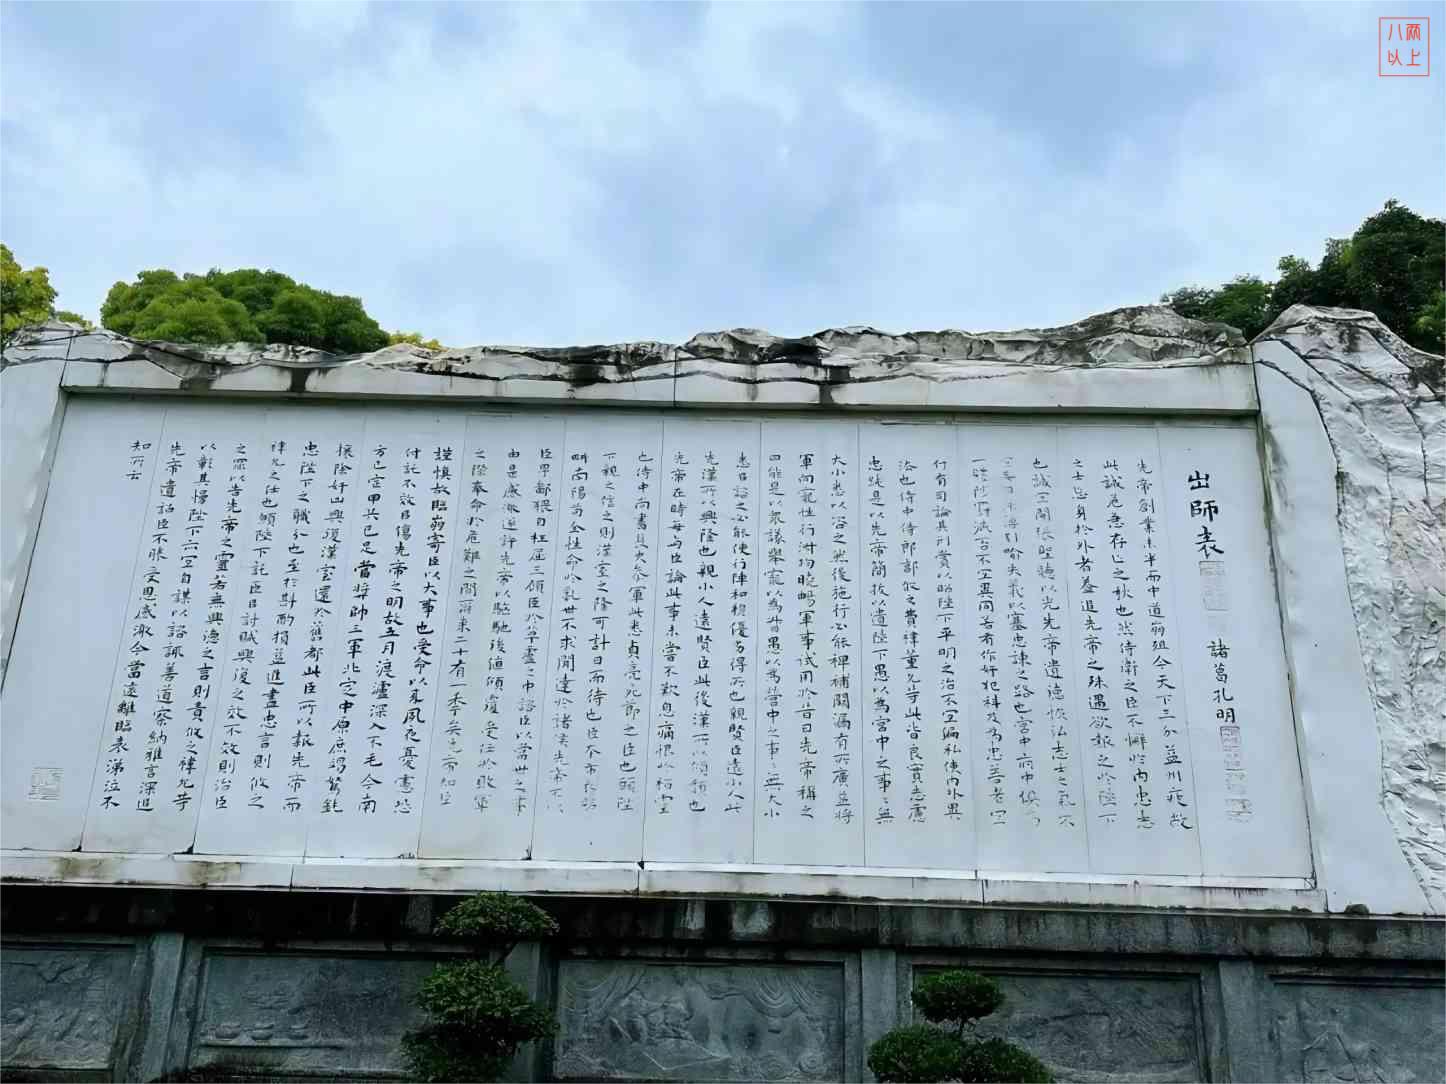 八兩
以上
出師表
諸葛孔明
先帝創業未半而中道崩殂今天下三分益州疲敝
此誠危急存亡之秋也然侍衛之臣不懈於內忠志
之士忘身於外者蓋追先帝之殊遇欲報之於陛下
也誠宜開張聖聽以光先帝遺德恢弘志士之氣不
宜妄自菲薄引喻失義以塞忠諫之路也宮中府中俱為
一體陟罰臧否不宜異同若有作奸犯科及為忠善者宜
付有司論其刑賞以昭陛下平明之治不宜偏私使內外異
法也侍中侍郎郭攸之費禕董允等此皆良實志慮
忠純是以先帝簡拔以遺陛下愚以為宮中之事々無
大小悉以咨之然後施行必能裨補闕漏有所廣益將
軍向寵性行淑均曉暢軍事試用於昔日先帝稱之
曰能是以眾議舉寵以為督愚以為營中之事々無大小
悉以諮之必能使行陣和穆優劣得所也親賢臣遠小人此
先漢所以興隆也親小人遠賢臣此後漢所以傾頹也
先帝在時每與臣論此事未嘗不歎息痛恨於桓靈
也侍中尚書長史參軍此悉貞亮死節之臣也願陛
下親之信之則漢室之隆可計日而待也臣本布衣躬
畊南陽苟全性命於亂世不求聞達於諸侯先帝不以
臣卑鄙猥自枉屈三顧臣於草廬之中諮臣以當世之事
由是感激遂許先帝以驅馳後值傾覆受任於敗軍
之際奉命於危難之間爾來二十有一年矣先帝知臣
謹慎故臨崩寄臣以大事也受命以來夙夜憂慮恐
付託不效以傷先帝之明故五月渡瀘深入不毛今南
方已定甲兵已足當獎帥三軍北定中原庶竭駑鈍
攘除奸凶興復漢室還於舊都此臣所以報先帝而
忠陛下之職分也至於斟酌損益進盡忠言則攸之
禕允之任也願陛下託臣以討賊興復之效不效則治臣
之罪以告先帝之靈若無興德之言則責攸之禕允等
以彰其慢陛下亦宜自謀以諮諏善道察納雅言深追
先帝遺詔臣不勝受恩感激今當遠離臨表涕泣不
知所云